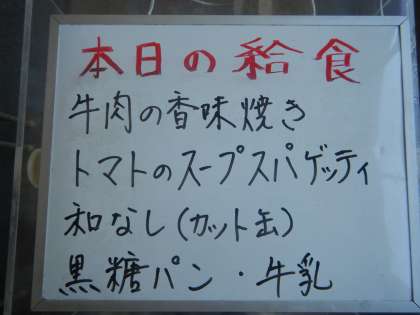 本日の給食
牛肉の香味焼き
トマトのスープスパゲッティ
和なし(カット缶)
黒糖パン・牛乳